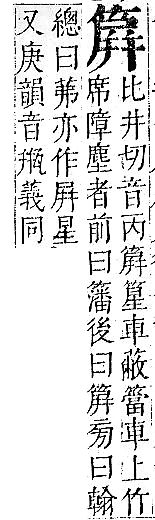 箳
比井切音丙箳篂車蔽簹車上竹
席障塵者前曰籓後曰箳旁曰翰
總曰茀亦作屏星
又庚韻音瓶義同